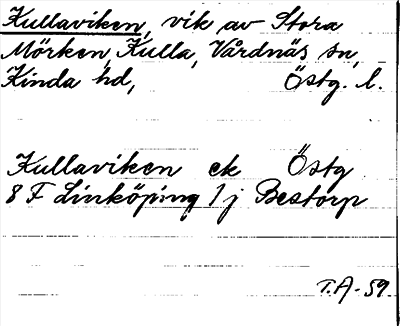 Kullaviken, vik av Stora
Mörken, Kulla, Vårdnäs sn,
Kinda hd, Östg. l.
Kullaviken ek Östg
8 F Linköping 1 j Bestorp
T.A-59